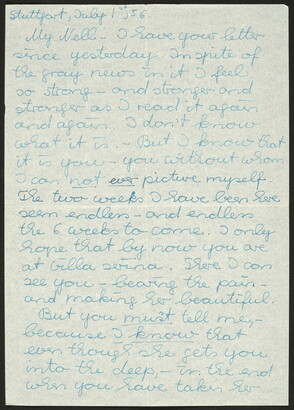 Stuttgart, July 1st, 56.
My Nell - I have your letter
since yesterday. In spite of
the gray news in it I feel
so strong - and stronger and
stronger as I read it again
and again. I don't know
what it is. - But I know that
it is you - you without whom
I can not ever picture myself.
The two weeks I have been here
seem endless - and endless
the 6 weeks to come. I only
hope that by now you are
at Villa Serina. There I can
see you - bearing the pain -
and making her beautiful.
But you must tell me, -
because I know that
even though she gets you
into the deep, - in the end
when you have taken her